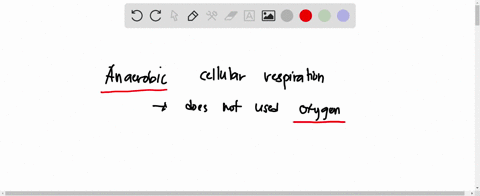 Anaerobic cellular respiration
→ does not used oxygen